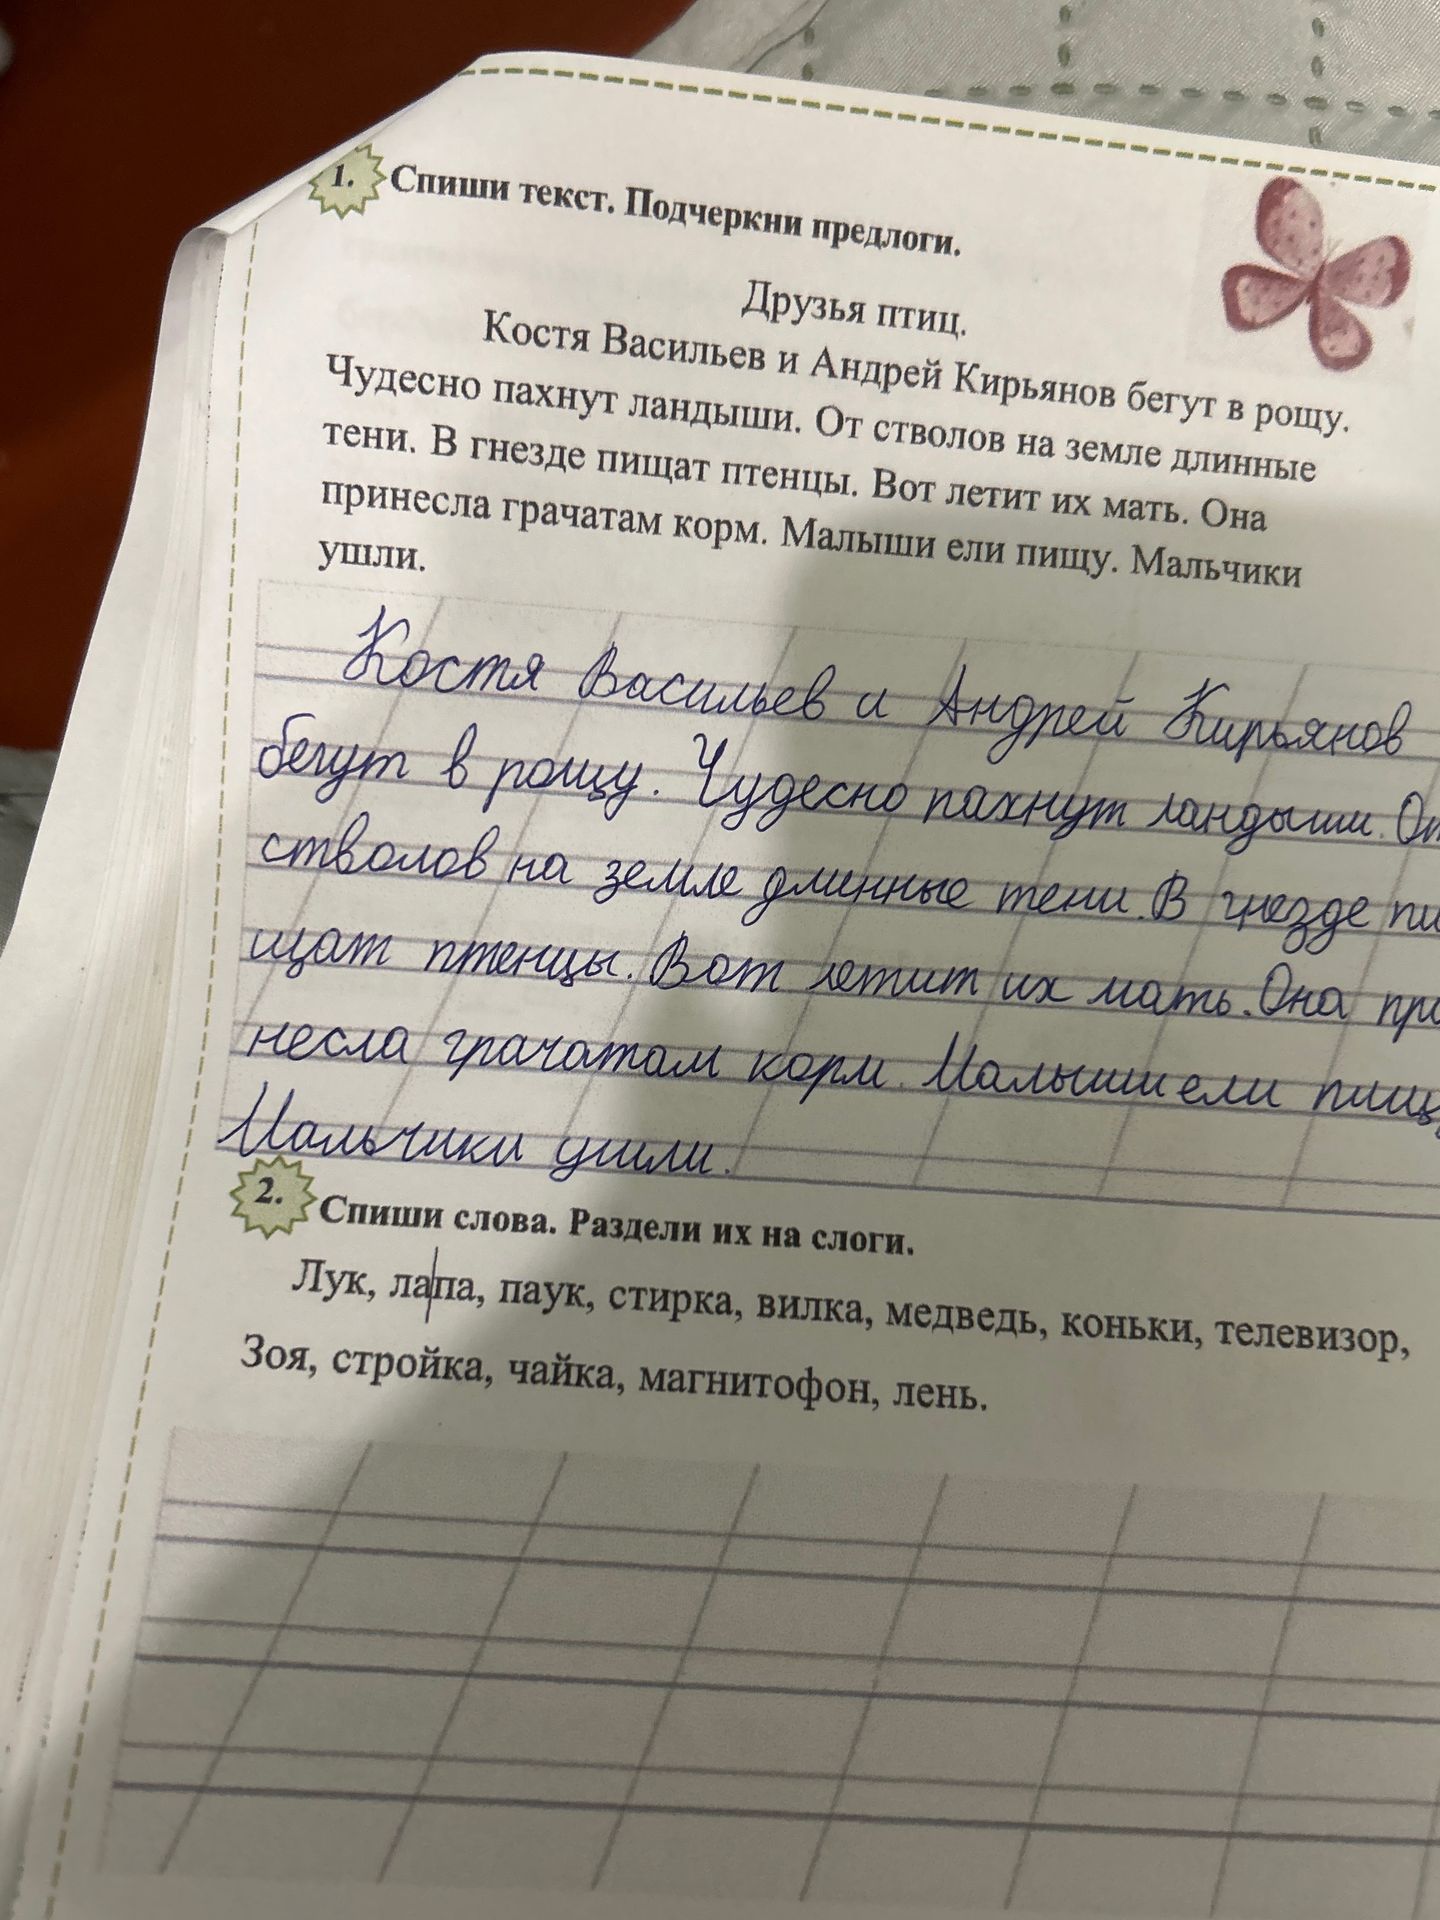 1. Спиши текст. Подчеркни предлоги.
Друзья птиц.
Костя Васильев и Андрей Кирьянов бегут в рощу.
Чудесно пахнут ландыши. От стволов на земле длинные
тени. В гнезде пищат птенцы. Вот летит их мать. Она
принесла грачатам корм. Малыши ели пищу. Мальчики
ушли.
Костя Васильев и Андрей Кирьянов
бегут в рощу. Чудесно пахнут ландыши. От
стволов на земле длинные тени. В гнезде пи
щат птенцы. Вот летит их мать. Она при
несла грачатам корм. Малыши ели пищу
Мальчики ушли.
2. Спиши слова. Раздели их на слоги.
Лук, ла|па, паук, стирка, вилка, медведь, коньки, телевизор,
Зоя, стройка, чайка, магнитофон, лень.